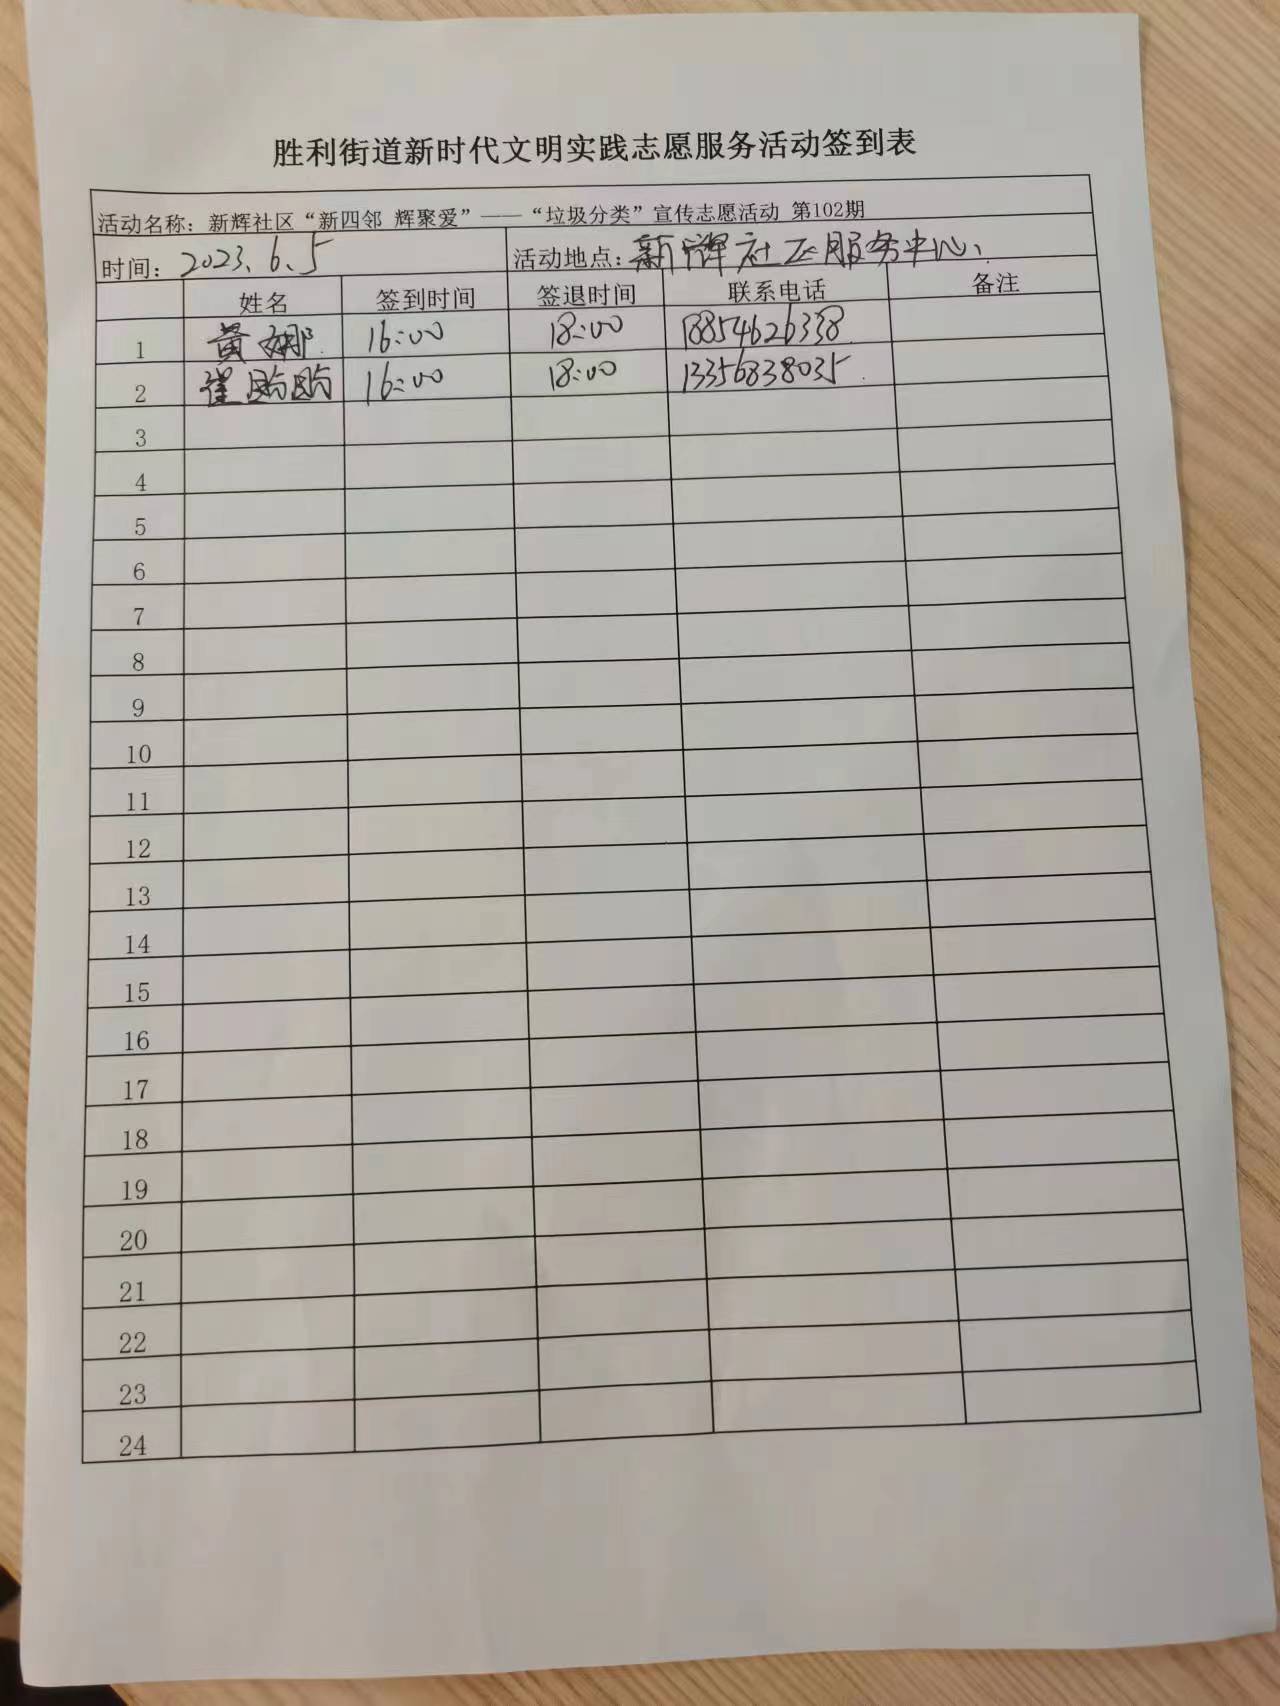 胜利街道新时代文明实践志愿服务活动签到表
活动名称：新辉社区“新四邻 辉聚爱”——“垃圾分类”宣传志愿活动 第102期
时间：2023.6.5 活动地点：新辉社区服务中心
姓名 签到时间 签退时间 联系电话 备注
1 黄娜 16:00 18:00 18854626338
2 崔 16:00 18:00 13356838035
3
4
5
6
7
8
9
10
11
12
13
14
15
16
17
18
19
20
21
22
23
24